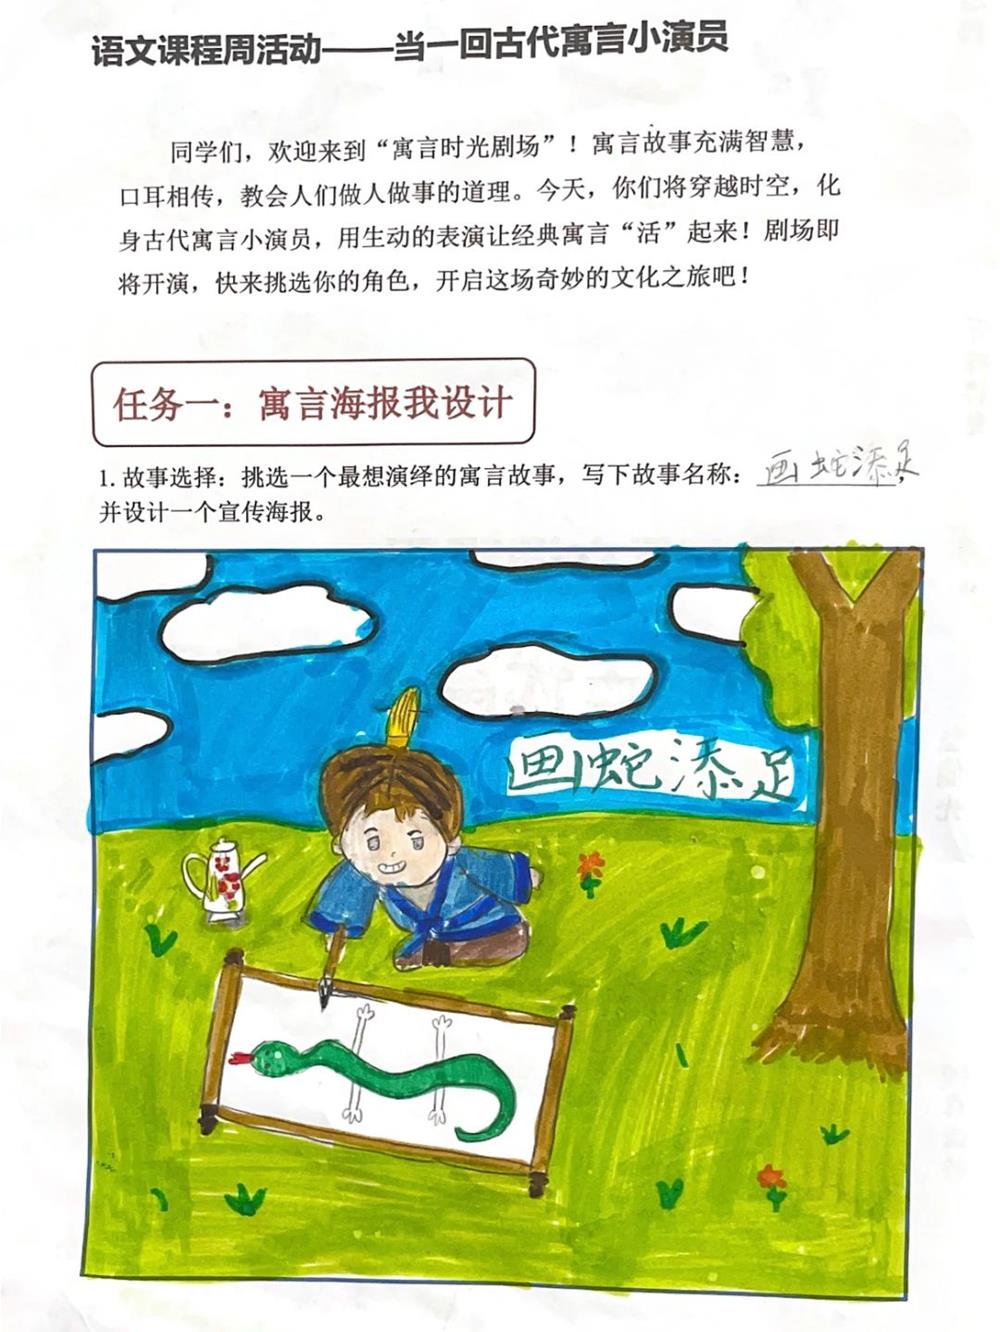 语文课程周活动——当一回古代寓言小演员
同学们，欢迎来到“寓言时光剧场”！寓言故事充满智慧，
口耳相传，教会人们做人做事的道理。今天，你们将穿越时空，化
身古代寓言小演员，用生动的表演让经典寓言“活”起来！剧场即
将开演，快来挑选你的角色，开启这场奇妙的文化之旅吧！
任务一：寓言海报我设计
1. 故事选择：挑选一个最想演绎的寓言故事，写下故事名称：画蛇添足，
并设计一个宣传海报。
画蛇添足